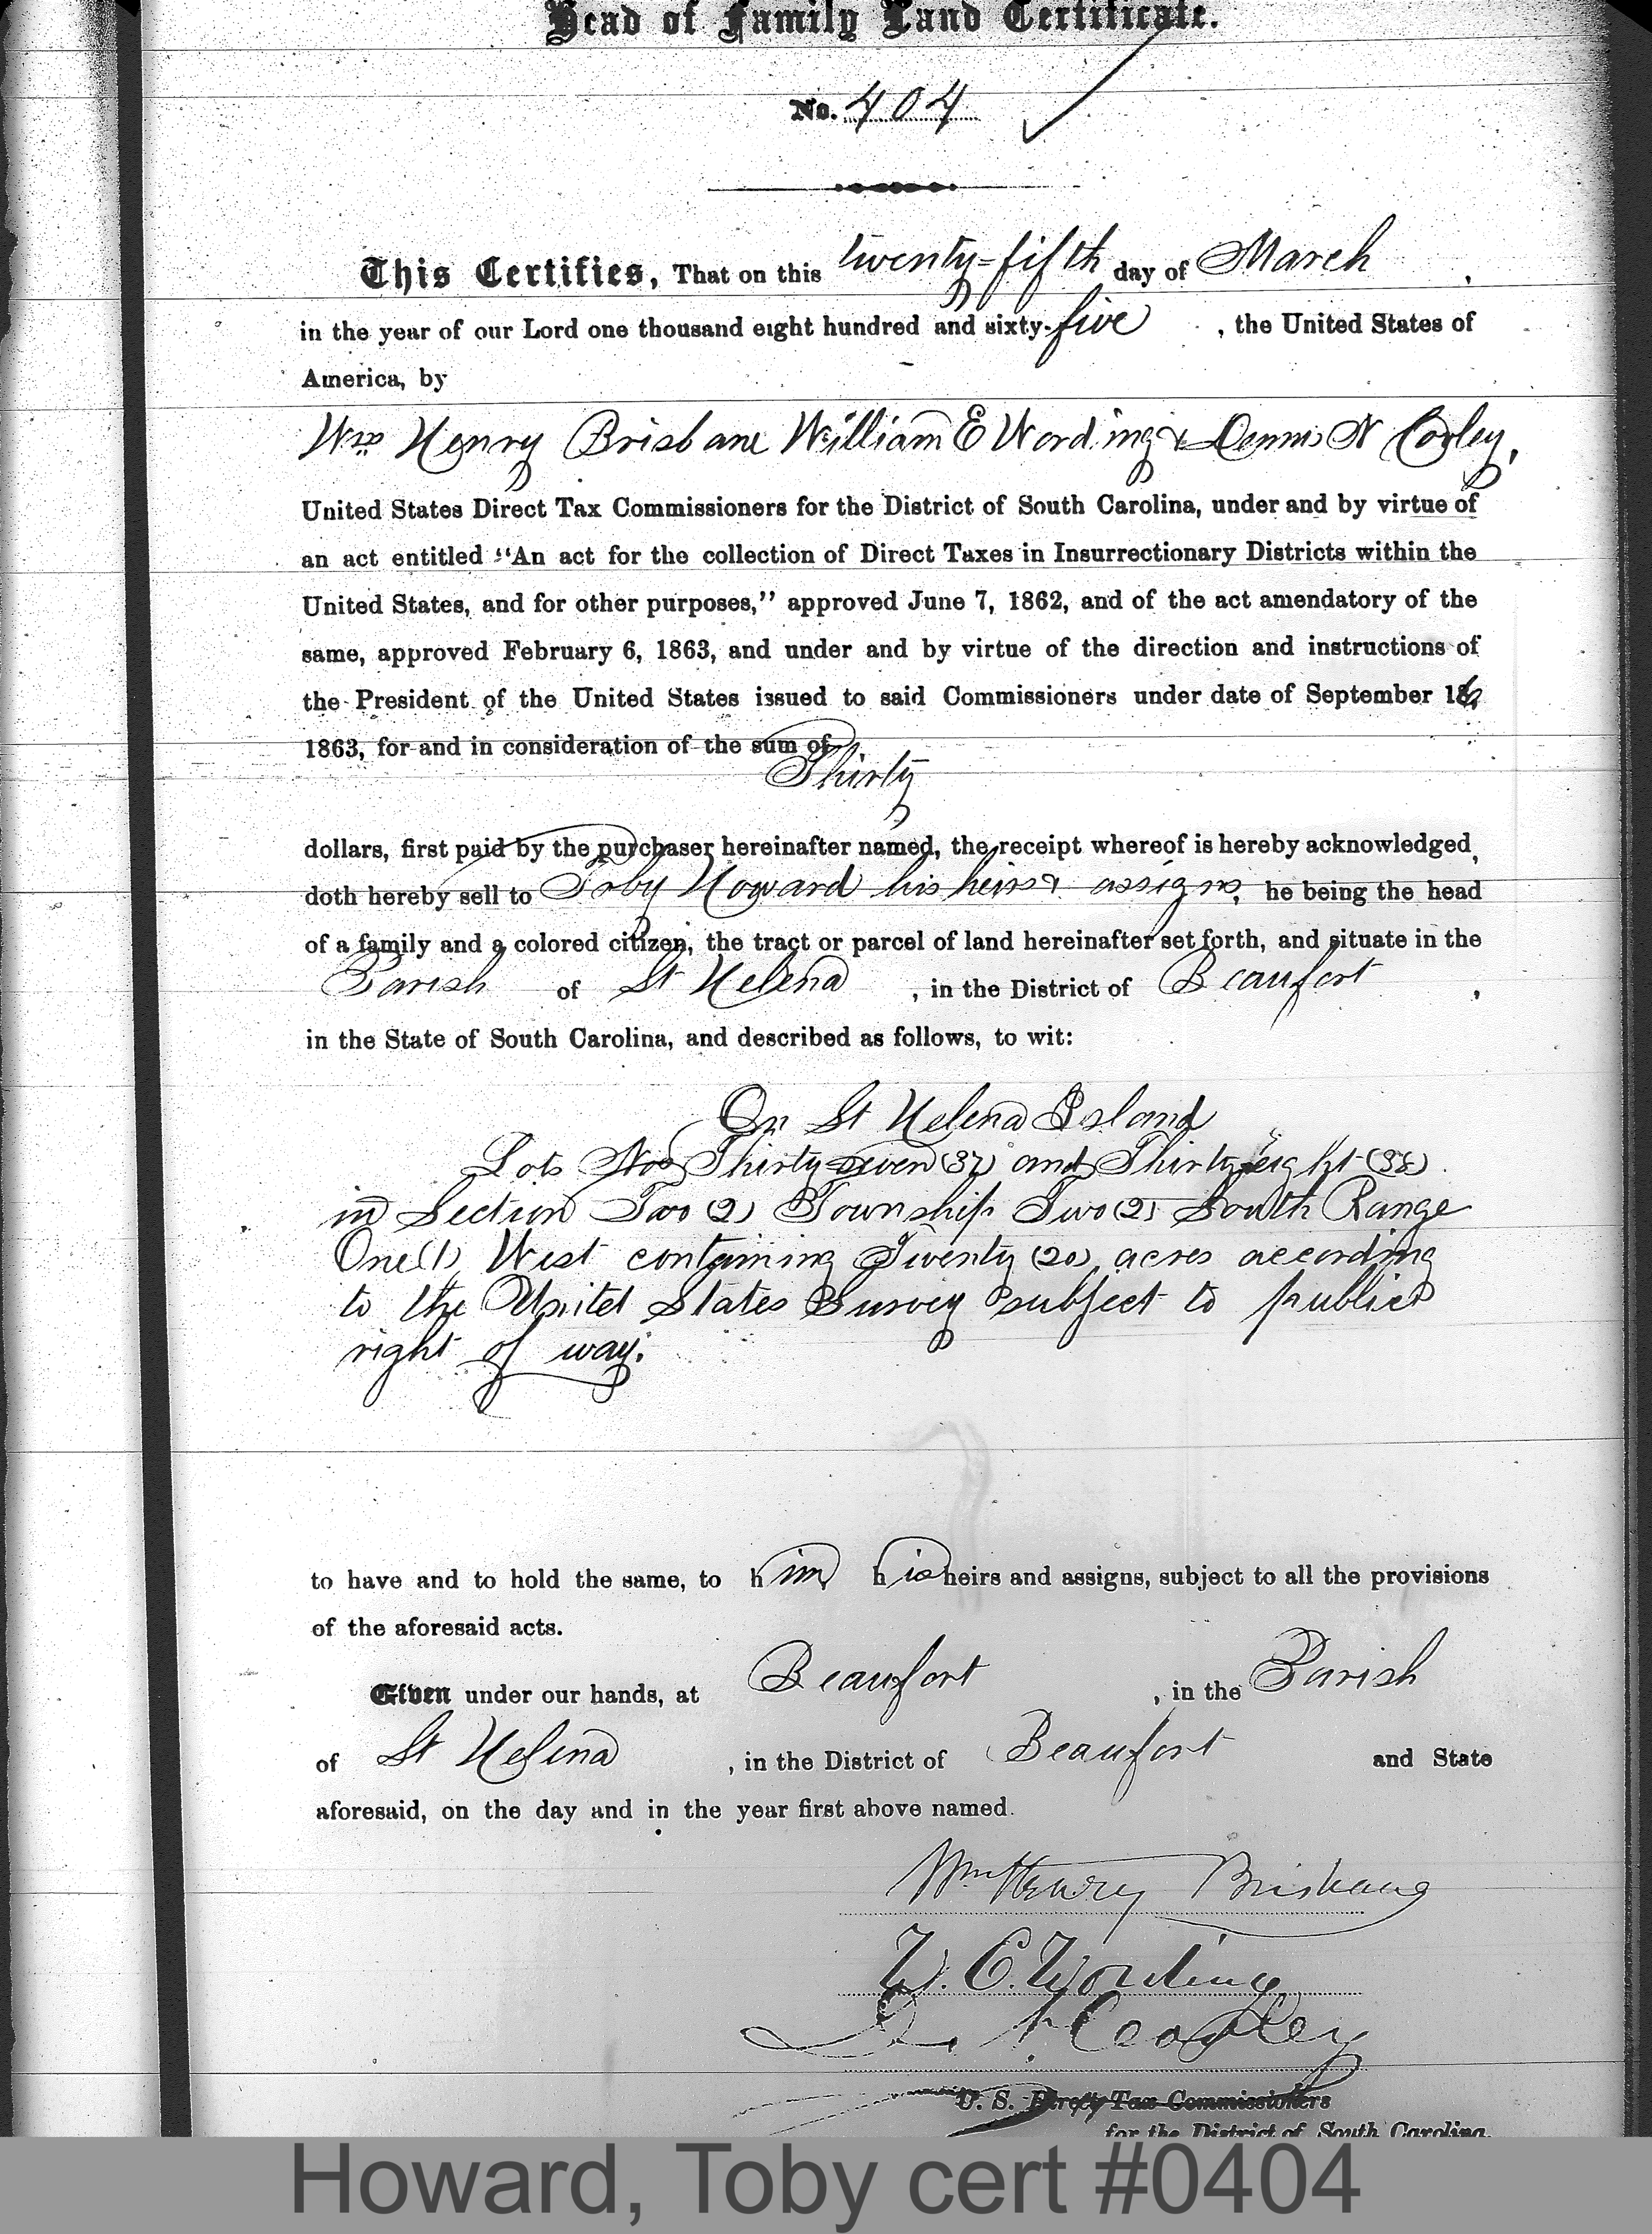 Head of Family Land Certificate.
No. 404
This Certifies, That on this twenty-fifth day of March ,
in the year of our Lord one thousand eight hundred and sixty-five , the United States of
America, by
Wm Henry Brisbane William E Wording & Dennis N Cooley,
United States Direct Tax Commissioners for the District of South Carolina, under and by virtue of
an act entitled "An act for the collection of Direct Taxes in Insurrectionary Districts within the
United States, and for other purposes," approved June 7, 1862, and of the act amendatory of the
same, approved February 6, 1863, and under and by virtue of the direction and instructions of
the President of the United States issued to said Commissioners under date of September 16,
1863, for and in consideration of the sum of
Thirty
dollars, first paid by the purchaser hereinafter named, the receipt whereof is hereby acknowledged,
doth hereby sell to Toby Howard his heirs & assigns, he being the head
of a family and a colored citizen, the tract or parcel of land hereinafter set forth, and situate in the
Parish of St Helena , in the District of Beaufort ,
in the State of South Carolina, and described as follows, to wit:
On St Helena Island
Lots Nos Thirty-seven (37) and Thirty-eight (38)
in Section Two (2) Township Two (2) South Range
One (1) West containing Twenty (20) acres according
to the United States Survey subject to public
right of way.
to have and to hold the same, to him his heirs and assigns, subject to all the provisions
of the aforesaid acts.
Given under our hands, at Beaufort , in the Parish
of St Helena , in the District of Beaufort and State
aforesaid, on the day and in the year first above named.
Wm Henry Brisbane
W. E. Wording
D. N. Cooley
U. S. Direct Tax Commissioners
for the District of South Carolina.
Howard, Toby cert #0404